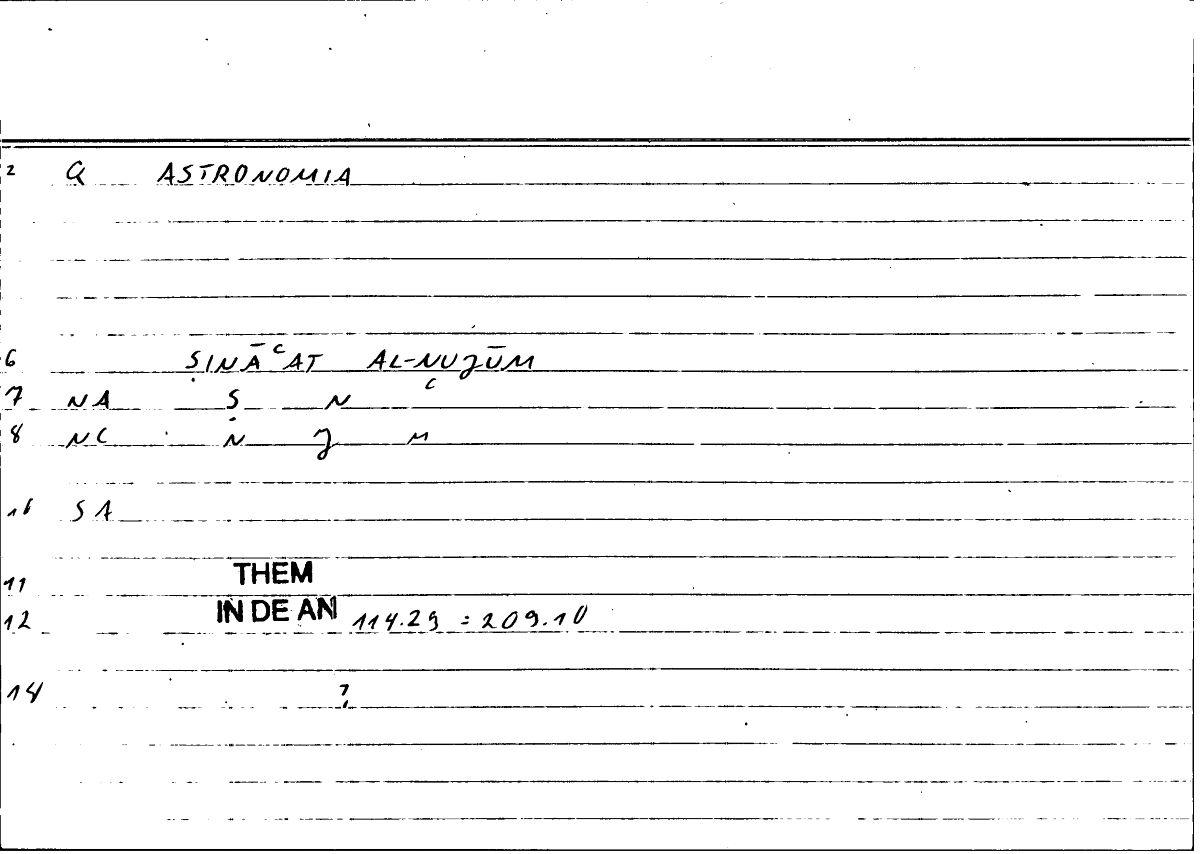 2 Q ASTRONOMIA
6 ṢINĀʿAT AL-NUJŪM
7 NA Ṣ N ʿ
8 NC N J M
10 SA
11 THEM
12 IN DE AN 114.29 : 209.10
14 ?